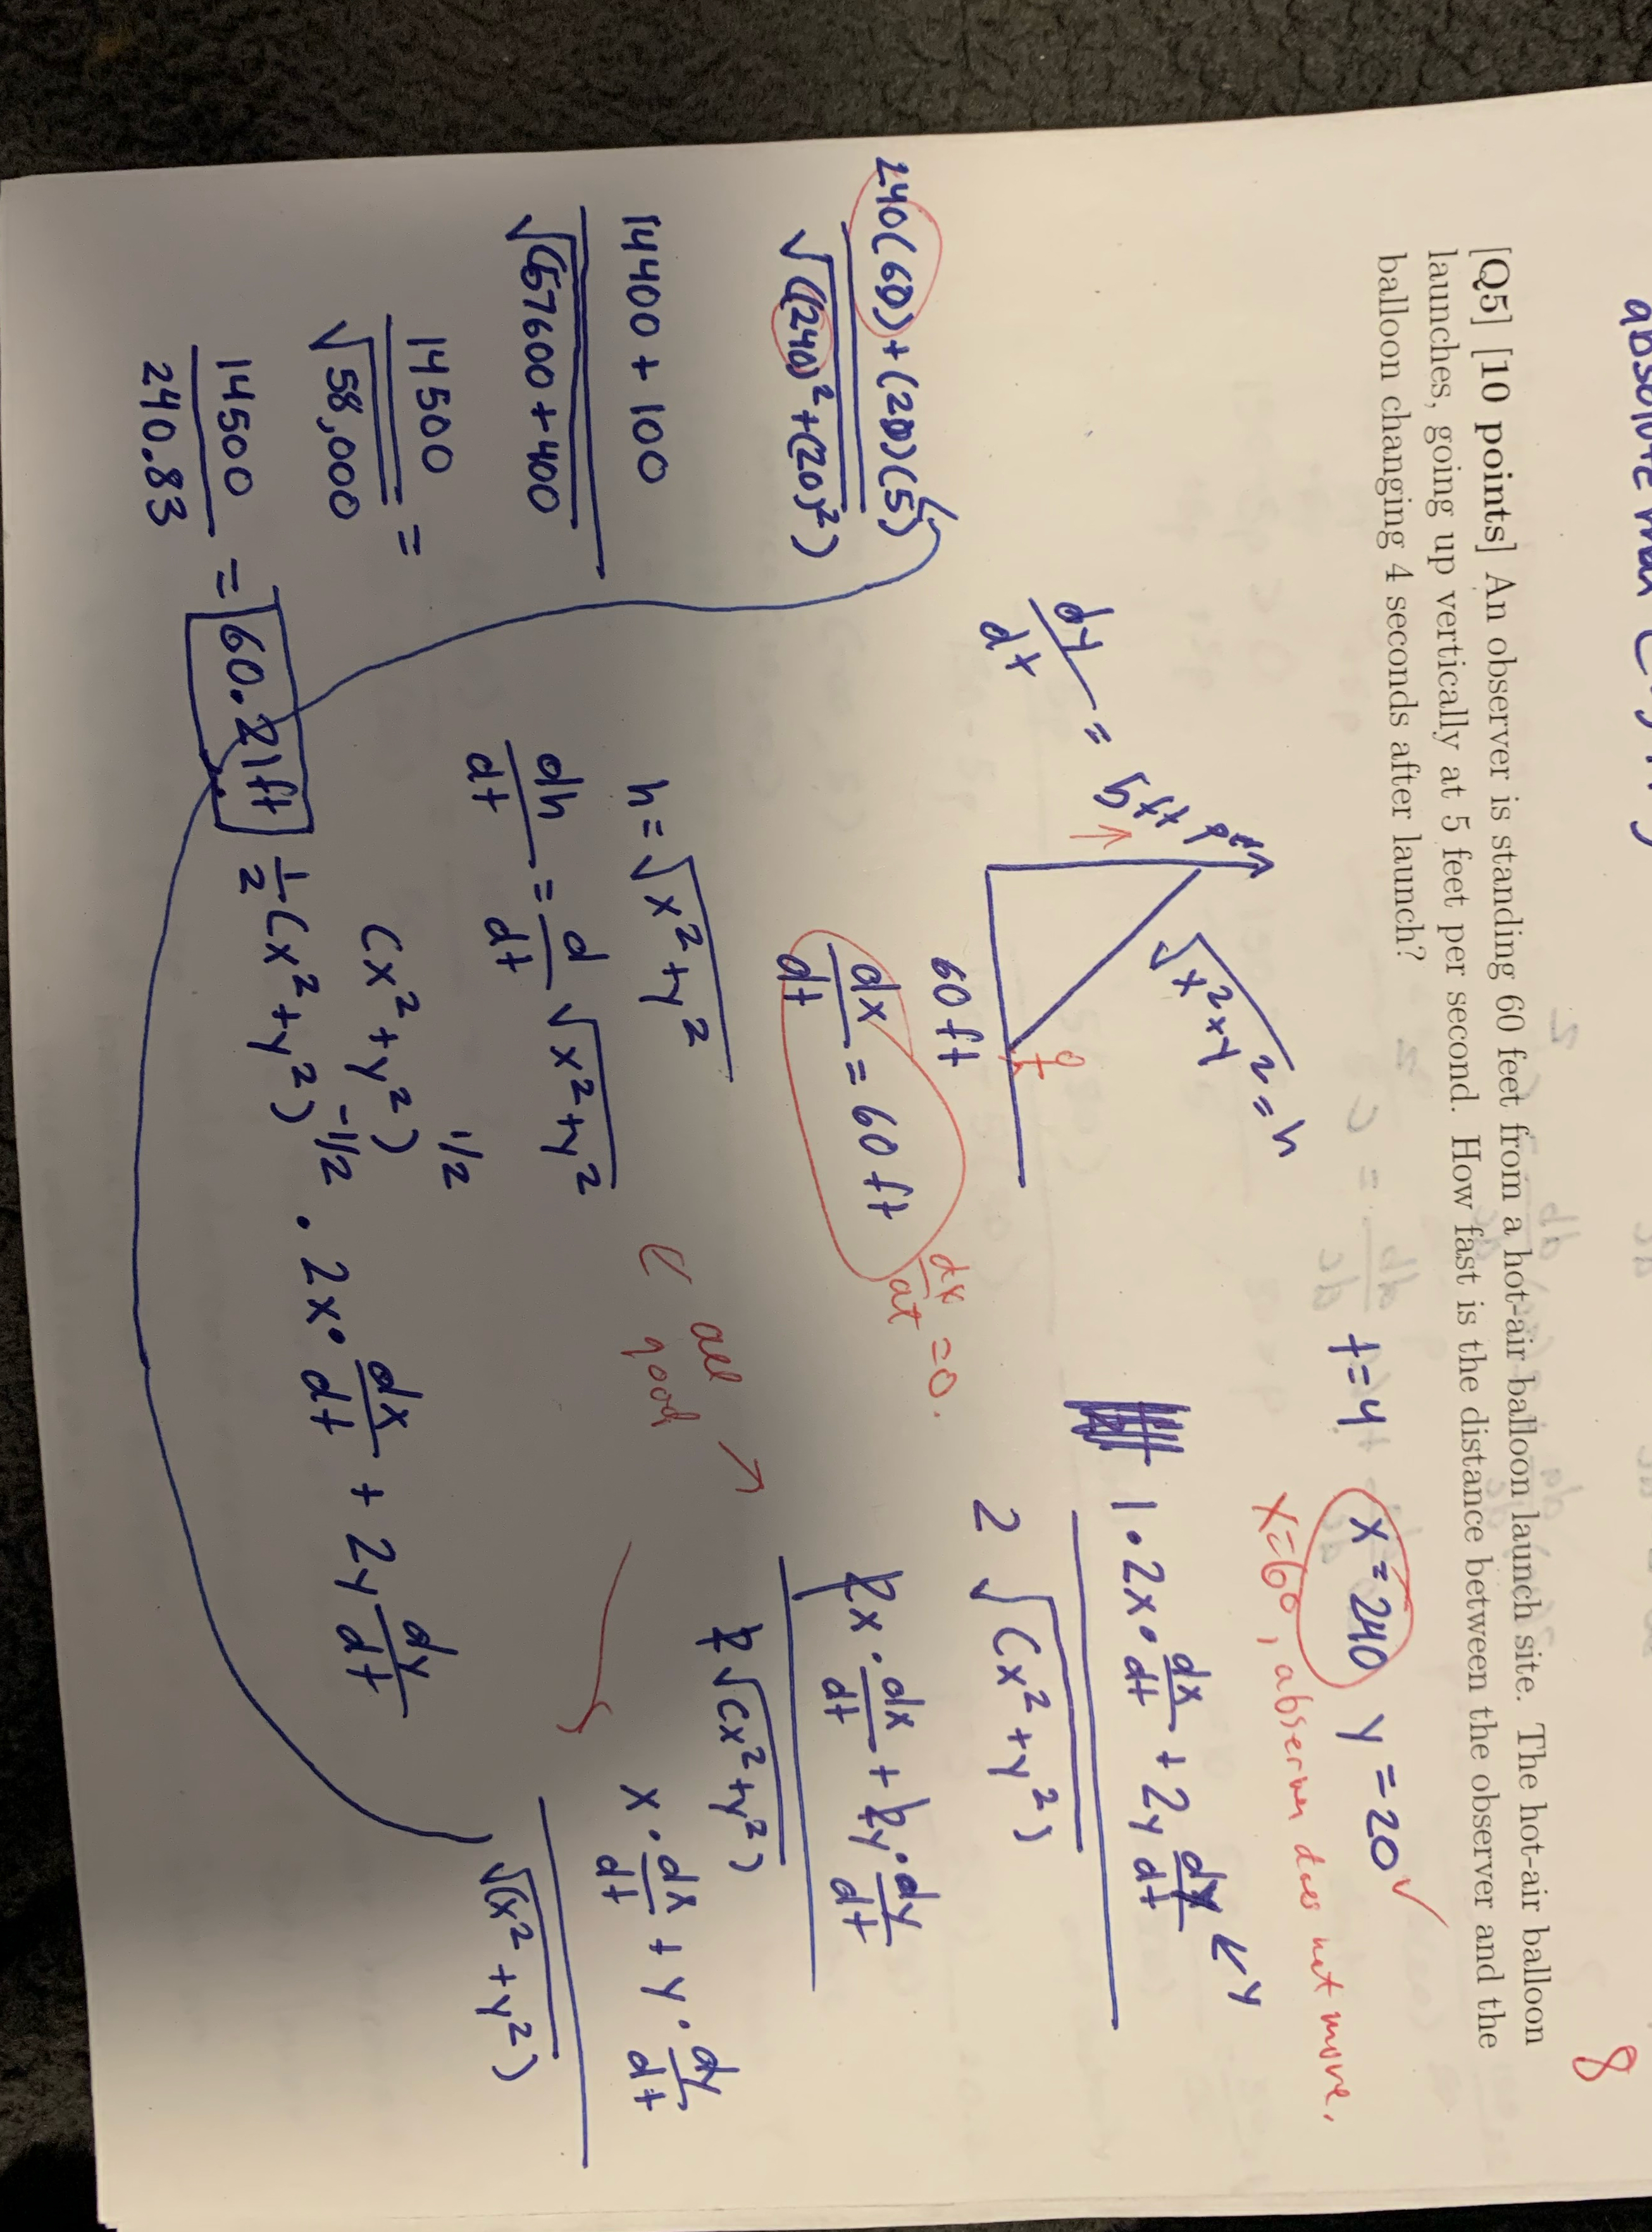 8
[Q5] [10 points] An observer is standing 60 feet from a hot-air balloon launch site. The hot-air balloon
launches, going up vertically at 5 feet per second. How fast is the distance between the observer and the
balloon changing 4 seconds after launch?
t=4 x=240 y=20 ✓
x=60, observer does not move.
dy/dt = 5ft per
√x²xy² = h
60ft
dx/dt = 60ft
dx/dt = 0.
1·2x·dx/dt + 2y dy/dt ← y
2√(x²+y²)
2x·dx/dt + 2y·dy/dt
2√(x²+y²)
all good
x·dx/dt + y·dy/dt
√(x²+y²)
h=√x²+y²
dh/dt = d/dt √x²+y²
(x²+y²)^1/2
1/2(x²+y²)^-1/2 · 2x·dx/dt + 2y dy/dt
240(60)+(20)(5)
√((240)²+(20)²)
14400+100
√(57600+400
14500
√58,000 =
14500
240.83 = 60.21ft